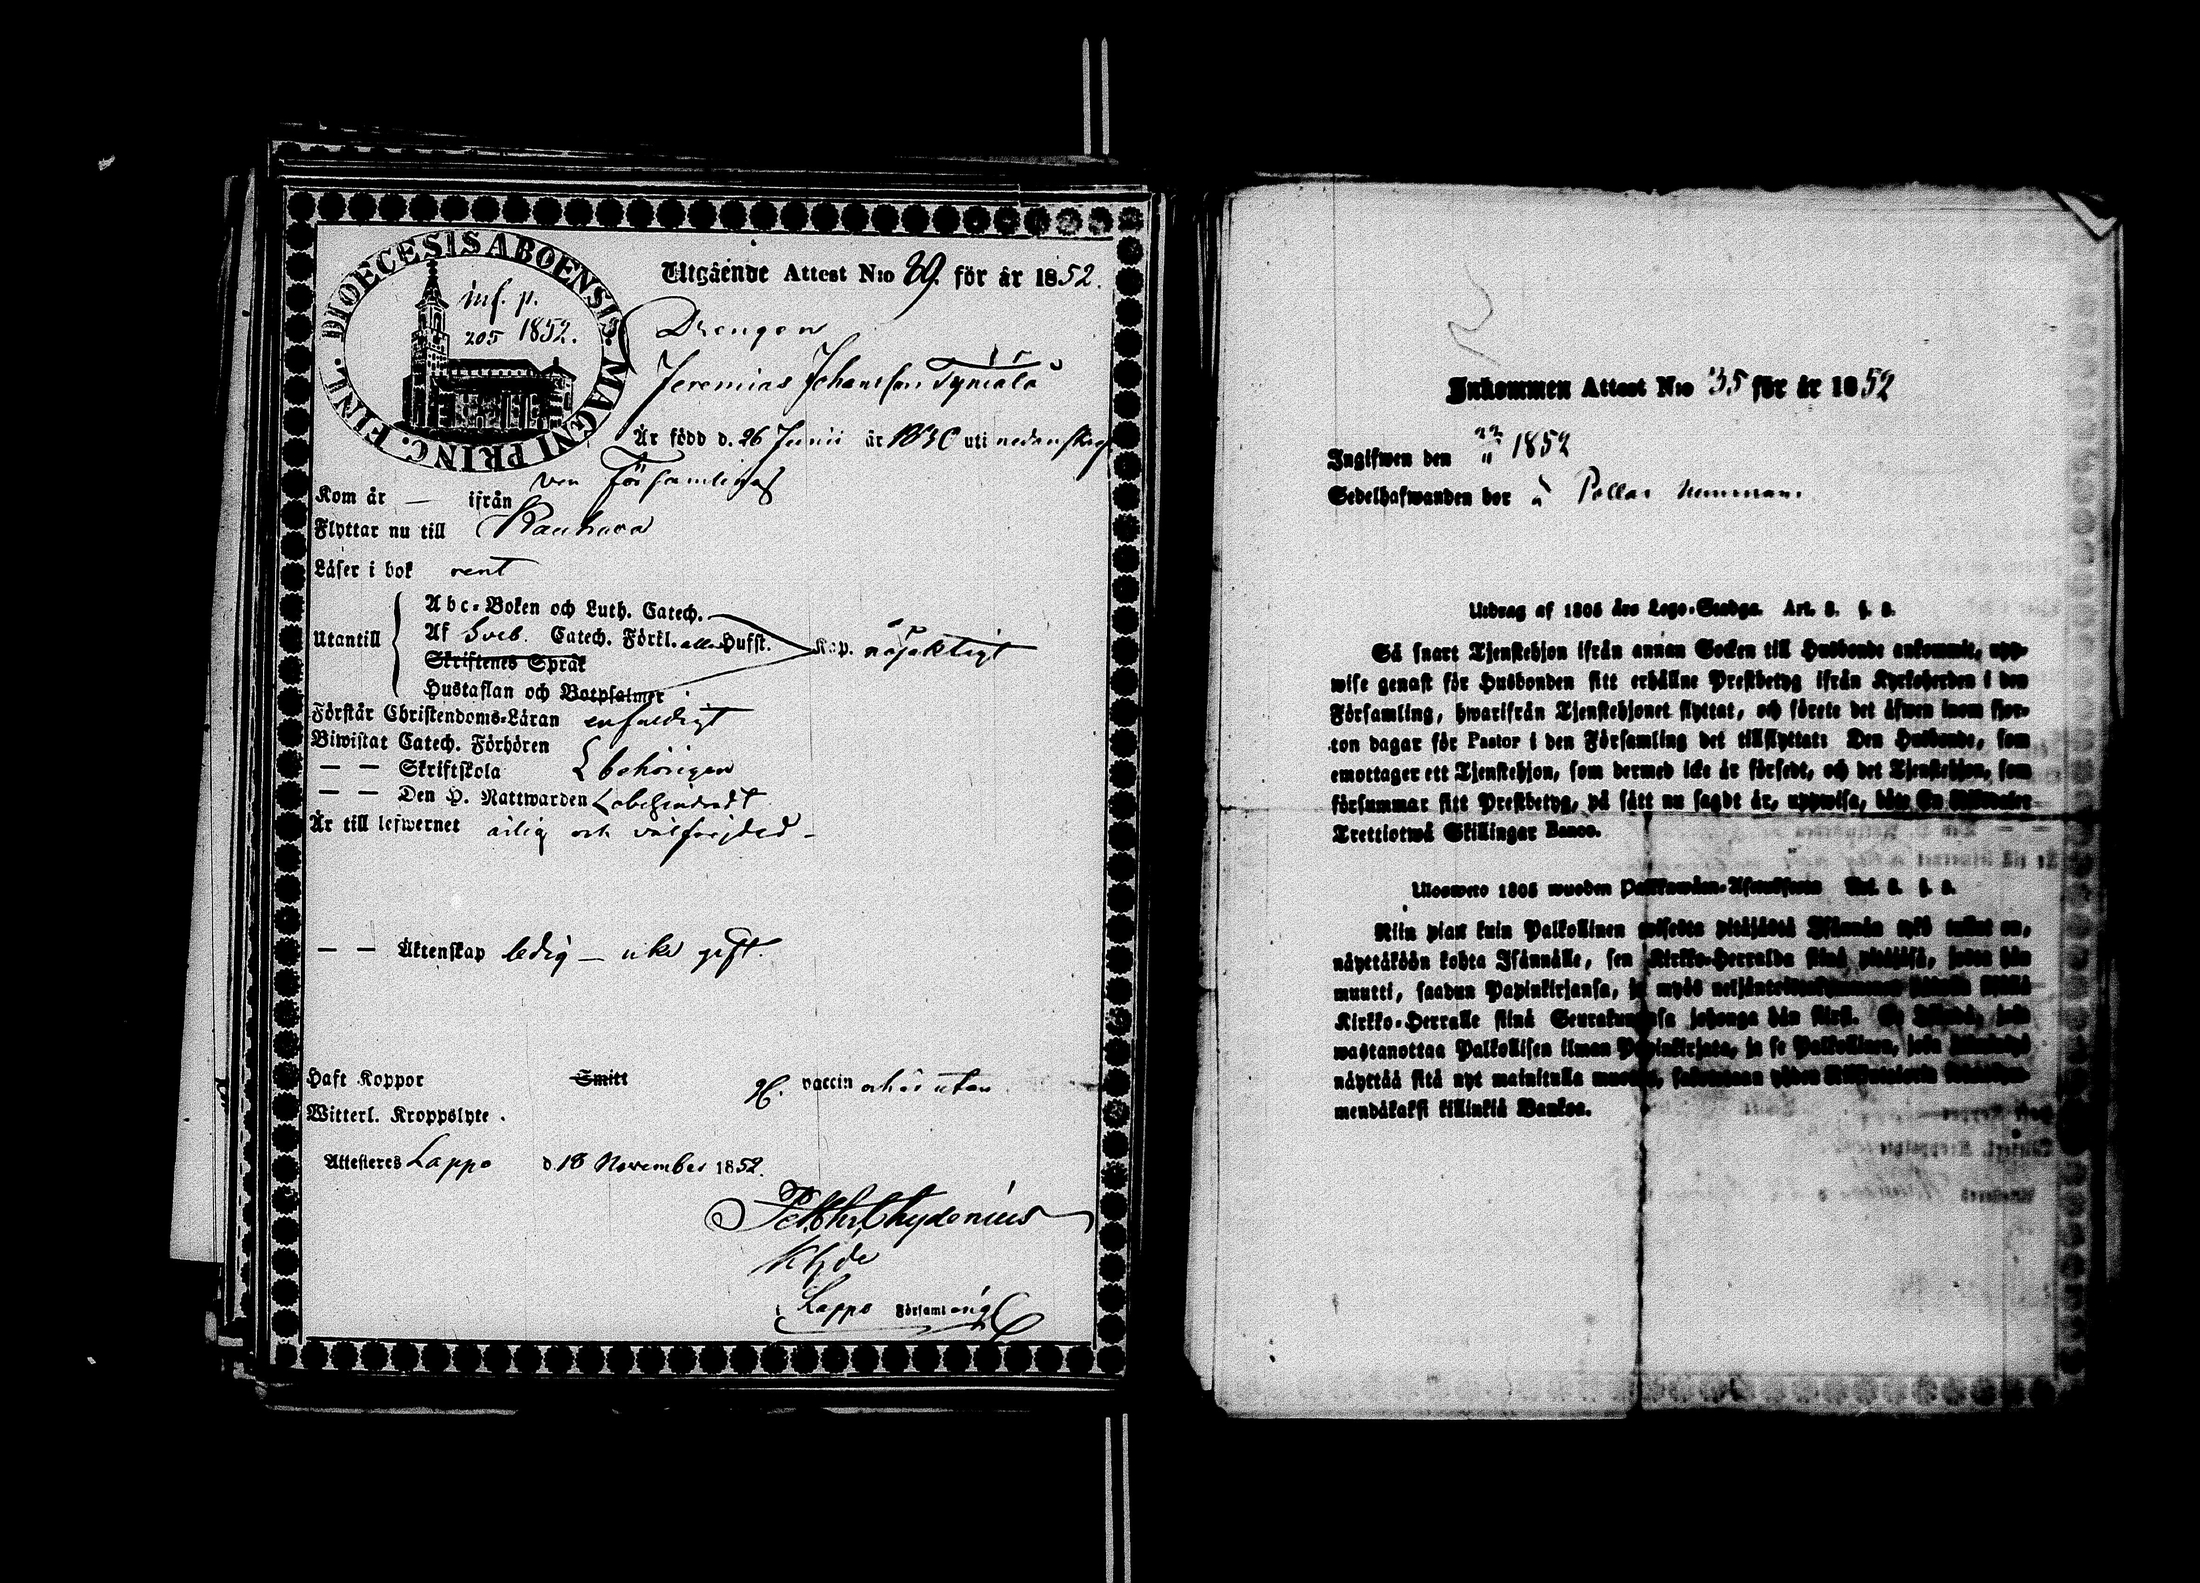 DIOECESIS ABOENSIS. MAGNI PRINC. FINL.
inf. p.
205 1852.
Utgående Attest N:ro 89. för år 1852.
Drengen
Jeremias Johansson
Är född d. 26 Junii år 1830 uti nedanskref
ven Församling
Kom år — ifrån
Flyttar nu till Kauhava
Läser i bok rent
Utantill
Abc-Boken och Luth. Catech.
Af Sveb. Catech. Förkl. Hufst.
Skriftenes Språk
Hustaflan och Botpsalmer
Kap. nöjaktigt
Förstår Christendoms-Läran enfaldigt
Biwistat Catech. Förhören
— — Skriftskola behörigen
— — Den H. Nattwarden obehindradt
Är till lefwernet ärlig och välfrejdad —
— — Äktenskap ledig — icke gift.
Haft Koppor Smitt vaccin
Witterl. Kroppslyte utan
Attesteres Lappo d. 18 November 1852.
Chydenius
Lappo Församling
Inkommen Attest N:ro 35 för år 1852
Ingifwen den 22/11 1852
Sedelhafwanden bor å
Utdrag af 1805 års Lego-Stadga. Art. 8. §. 8.
Så snart Tjenstehjon ifrån annan Socken till Husbonde ankommit, upp-
wise genast för Husbonden sitt erhållne Prestbetyg ifrån Kyrkoherden i den
Församling, hwarifrån Tjenstehjonet flyttat, och förete det äfwen inom fjor-
ton dagar för Pastor i den Församling det tillflyttat: Den Husbonde, som
emottager ett Tjenstehjon, som dermed icke är försedt, och det Tjenstehjon, som
försummar sitt Prestbetyg, på sätt nu sagdt är, uppwisa, böte En Riksdaler
Trettiotwå Skillingar Banco.
Ulosweto 1805 wuoden Palkkawäen-Asetuksesta Art. 8. §. 8.
Niin pian kuin Palkollinen toisesta pitäjästä Isännän tykö tullut on,
näyttäköön kohta Isännälle, sen Kirkko-Herralda siinä pitäjäsä, josta hän
muutti, saadun Papinkirjansa, ja myös
Kirkko-Herralle siinä Seurakunnasa johonga hän siirsi. Se Isändä, joka
wastanottaa Palkollisen ilman Papinkirjata, ja se Palkollinen, joka
näyttää sitä nyt mainitulla muodolla,
mendäkaksi killinkiä Bankoa.